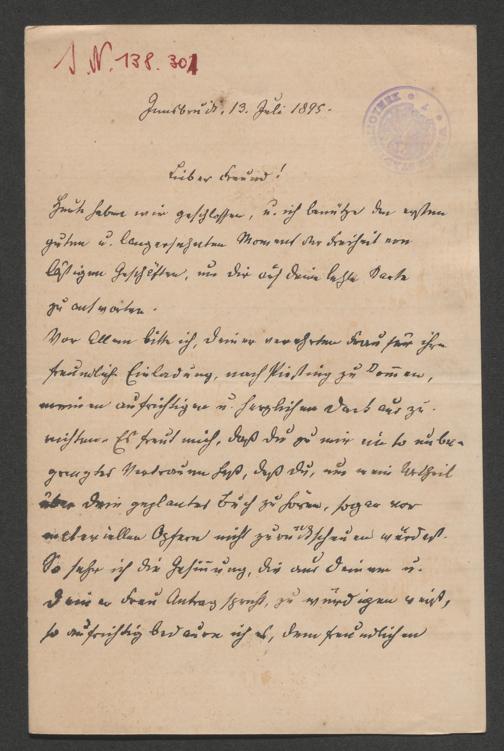 J. N. 138.301
Innsbruck, 13. Juli 1895.
Lieber Freund!
Heute haben wir geschlossen, u. ich benütze den ersten
guten u. langersehnten Moment der Freiheit von
lästigen Geschäften, um Dir auf Deine letzte Karte
zu antworten.
Vor Allem bitte ich, Deiner verehrten Frau für ihre
freundliche Einladung, nach Piesting zu kommen,
meinen aufrichtigen u. herzlichen Dank auszu-
richten. Es freut mich, daß Du zu mir ein so unbe-
grenztes Vertrauen hast, daß Du, um mein Urtheil
über Dein geplantes Buch zu hören, sogar vor
materiellen Opfern nicht zurückscheuen würdest.
So sehr ich die Gesinnung, die aus Deinem u.
Deiner Frau Antrag spricht, zu würdigen weiß,
so aufrichtig bedaure ich es, dem freundlichen